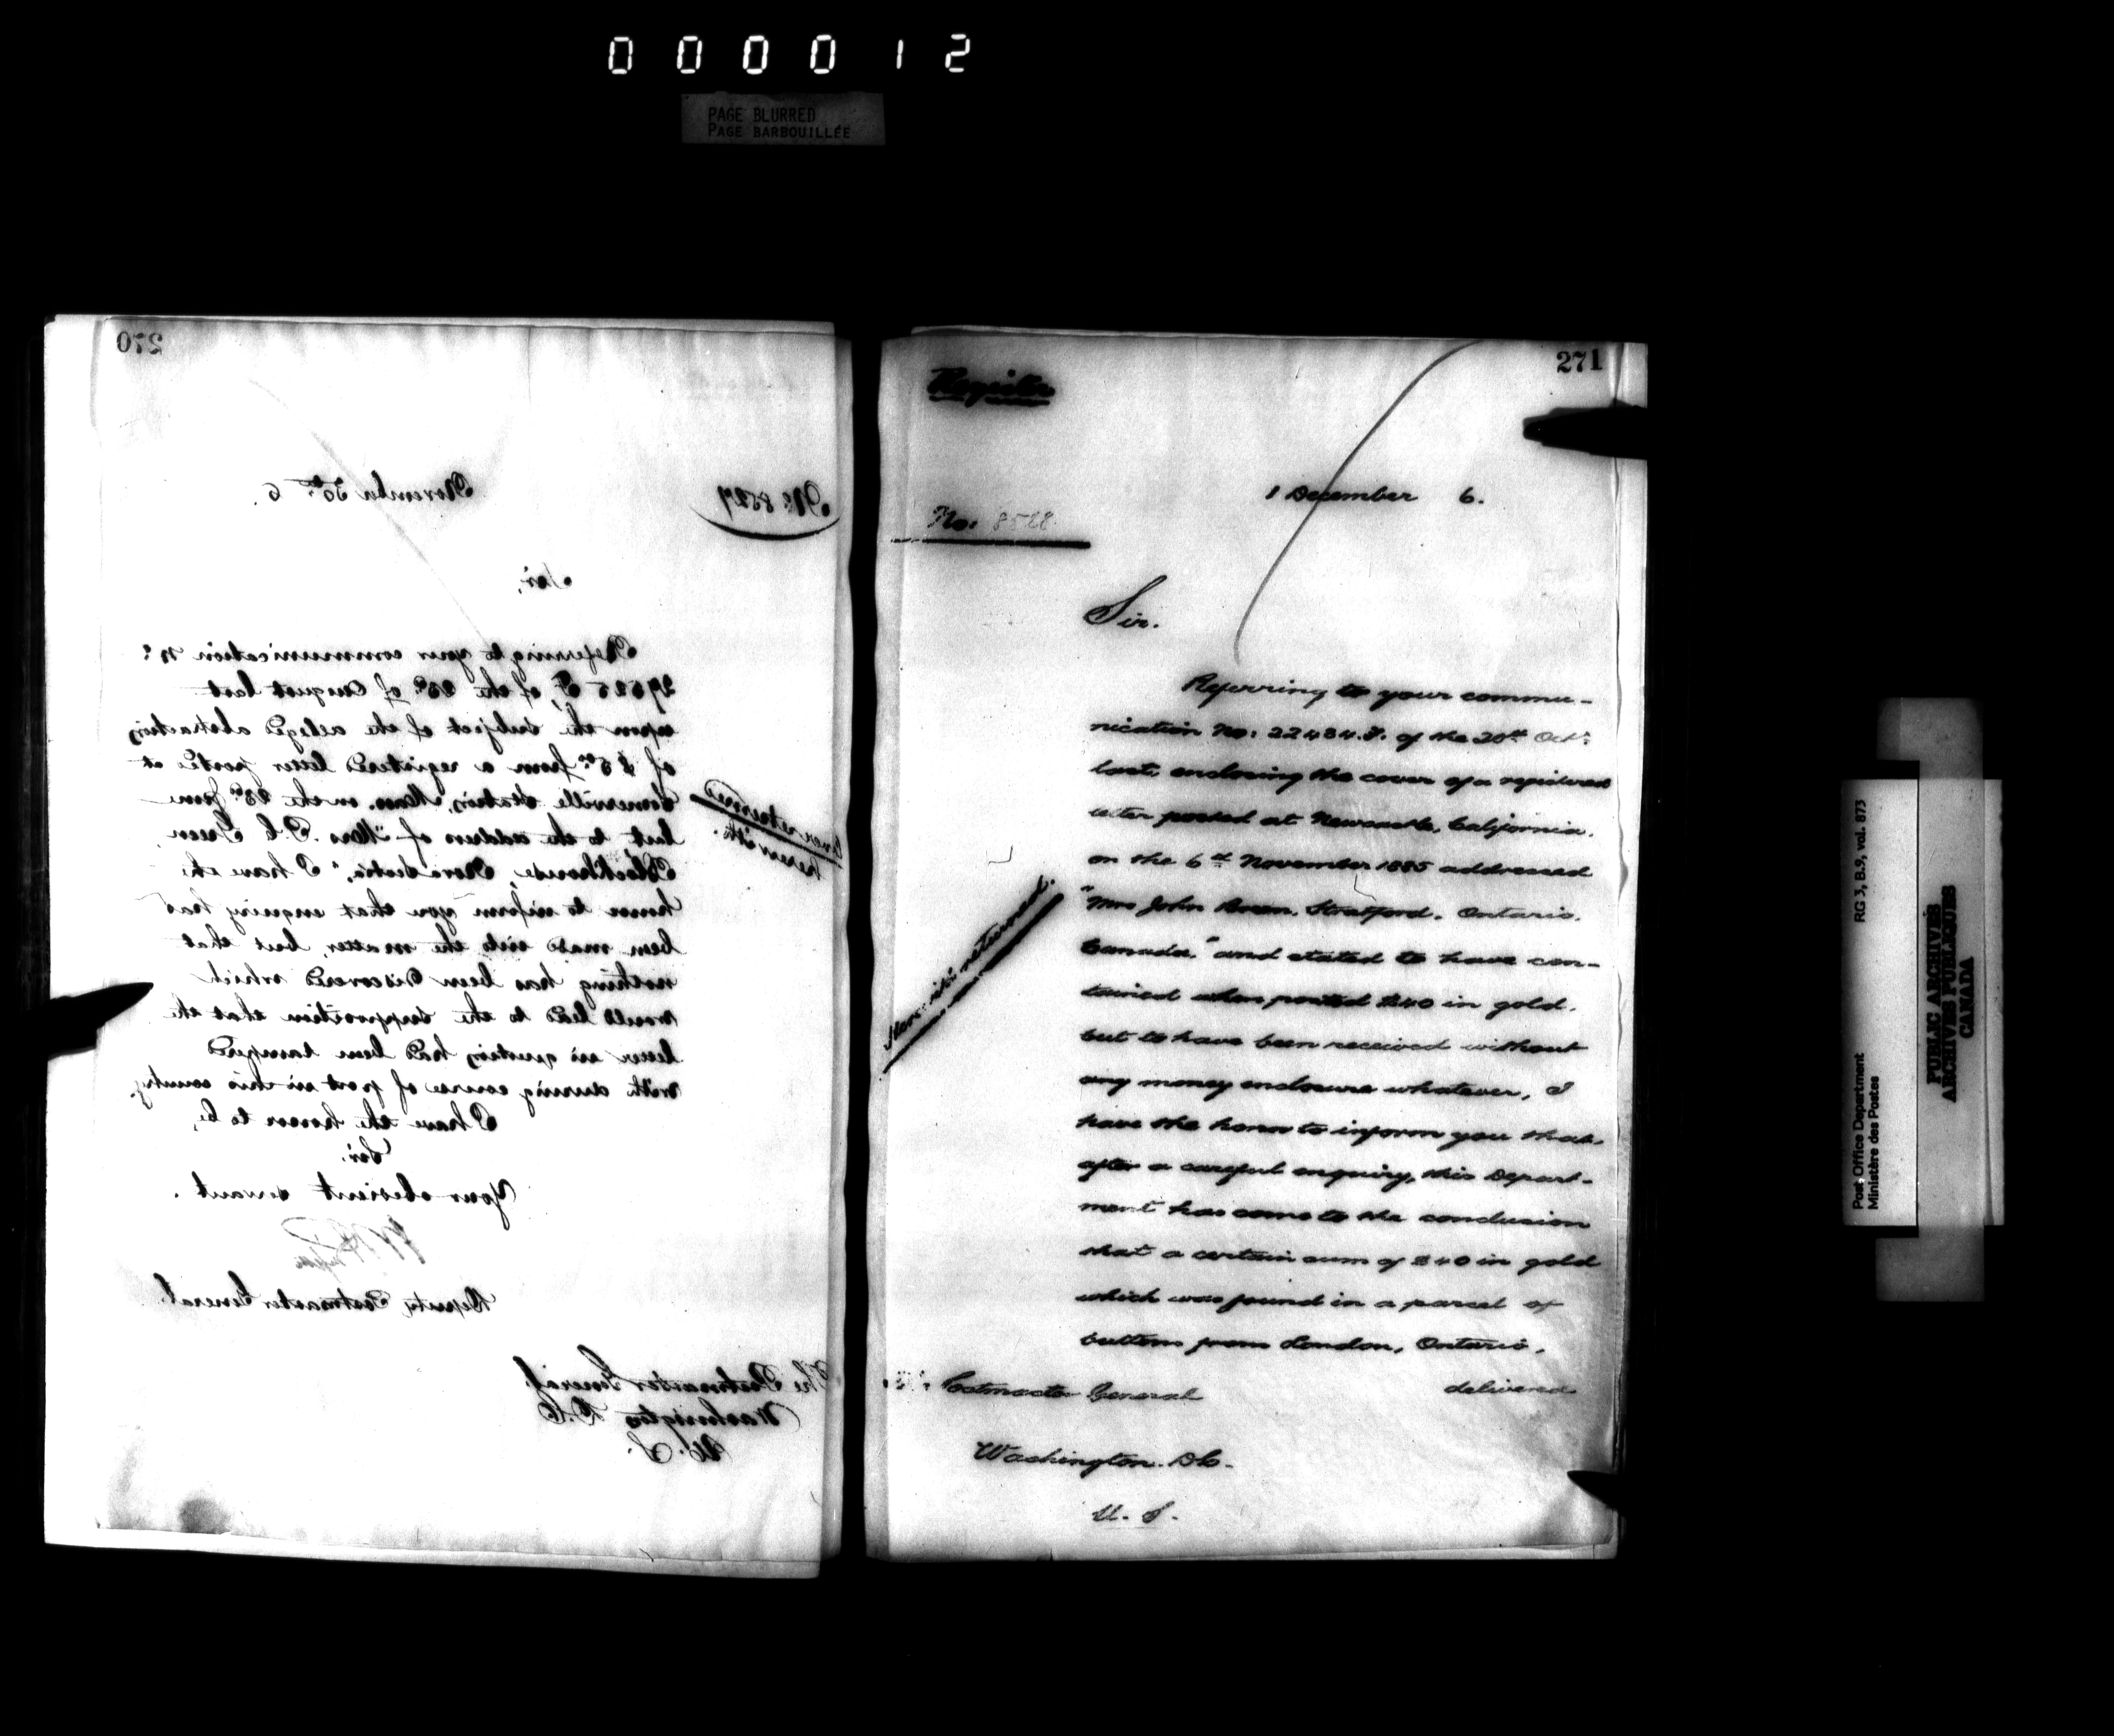 000012
PAGE BLURRED
PAGE BARBOUILLÉE
270
No. 8527
November 30th 6.
Sir,
Referring to your communication No.
of the 25th of August last
upon the subject of the alleged abstraction
of $5.00 from a registered letter posted at
Somerville Station, Mass. on the 23rd June
last to the address of "Mrs. P. C. Green,
Blockhouse, Nova Scotia", I have the
honor to inform you that enquiry has
been made into the matter, but that
nothing has been discovered which
would lead to the supposition that the
letter in question had been tampered
with during course of post in this country.
I have the honor to be,
Sir.
Your obedient servant.
Deputy Postmaster General.
Cover returned
herewith.
The Postmaster General.
Washington D.C.
U. S.
271
1 December 6.
No: 8528
Sir.
Referring to your commu-
nication No: 22484.F. of the 20th Octr.
last, enclosing the cover of a registered
letter posted at Newcastle, California.
on the 6th November 1885 addressed
"Mrs John Brown, Stratford. Ontario.
Canada," and stated to have con-
tained when posted $40 in gold.
but to have been received without
any money enclosure whatever, I
have the honor to inform you that,
after a careful enquiry, this Depart-
ment has come to the conclusion
that a certain sum of $40 in gold
which was found in a parcel of
buttons from London, Ontario,
delivered
returned.
Postmaster General
Washington. DC.
U. S.
Post Office Department
Ministère des Postes
RG 3, B.9, vol. 873
PUBLIC ARCHIVES
ARCHIVES PUBLIQUES
CANADA